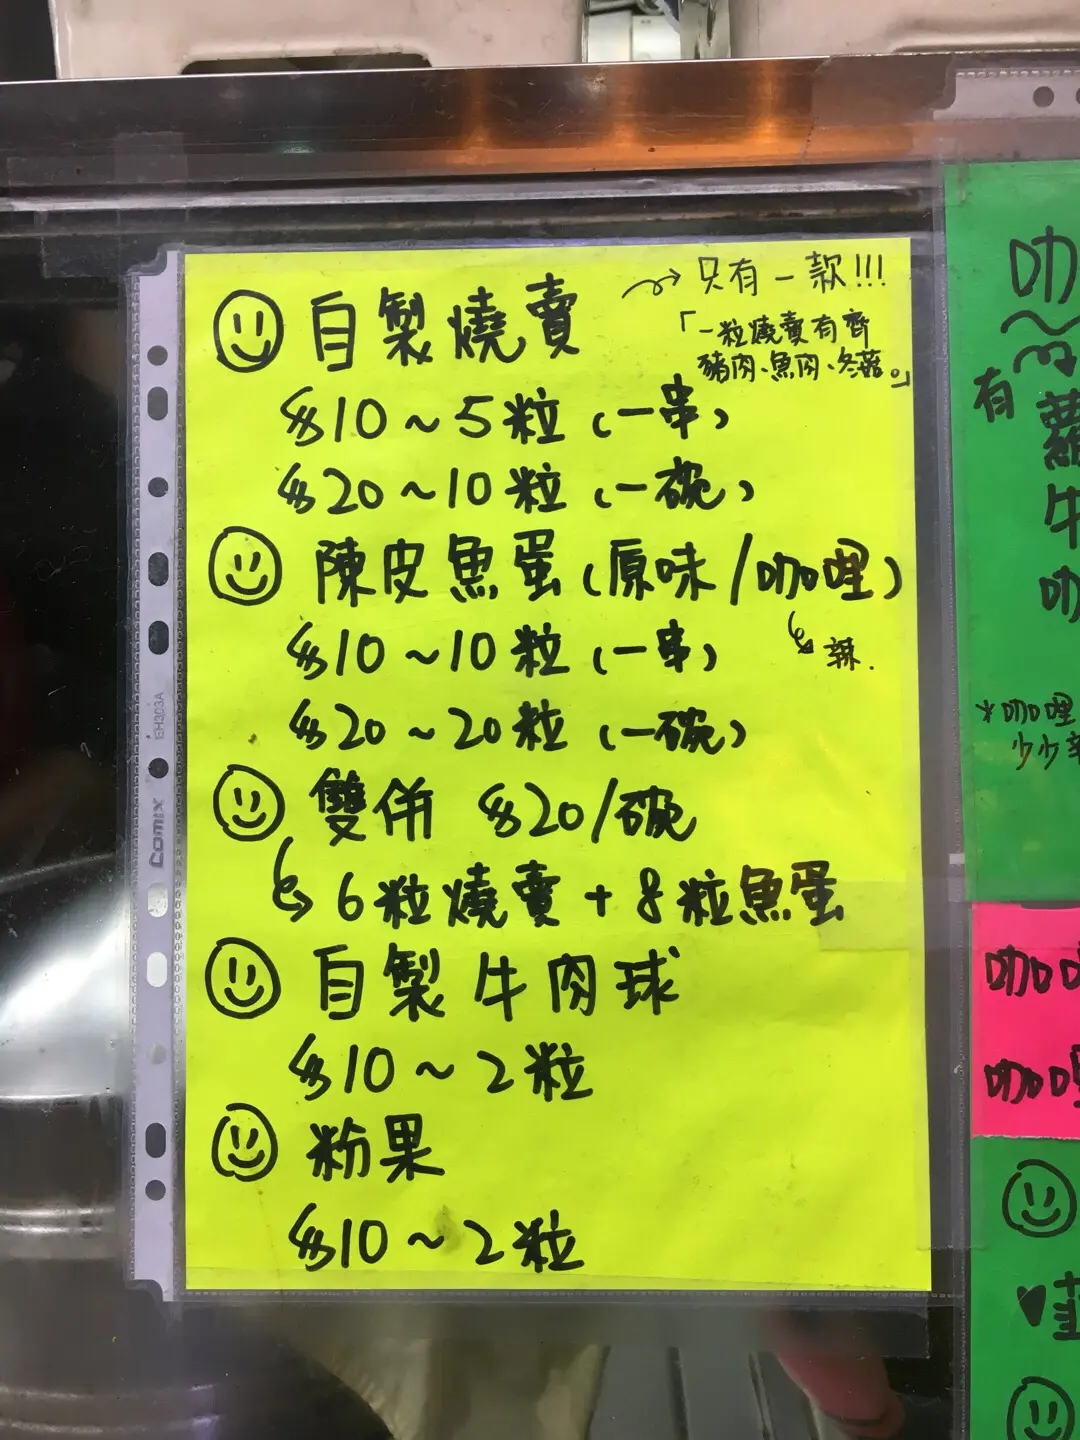 自製燒賣
→ 只有一款!!!
「一粒燒賣有齊
豬肉、魚肉、冬菇。」
$10~5粒(一串)
$20~10粒(一碗)
陳皮魚蛋(原味/咖哩)
辣.
$10~10粒(一串)
$20~20粒(一碗)
雙併 $20/碗
6粒燒賣+8粒魚蛋
自製牛肉球
$10~2粒
粉果
$10~2粒
Comix EH303A
咖
有
蘿
牛
咖
*咖哩
少少辛
咖哩
咖哩